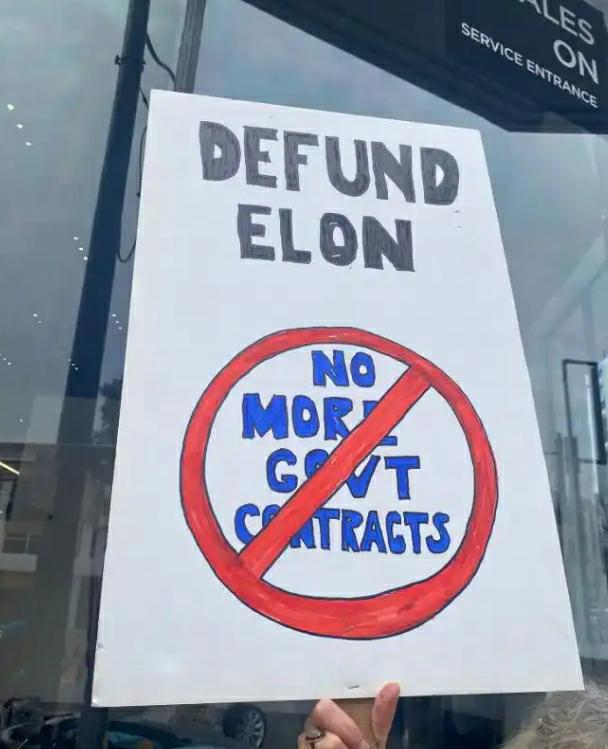 ON
SERVICE ENTRANCE
DEFUND
ELON
NO
MORE
GOVT
CONTRACTS